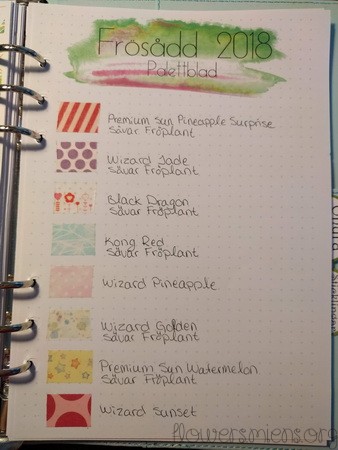 Frösådd 2018
Palettblad
Premium Sun Pineapple Surprise
Sävar Fröplant
Wizard Jade
Sävar Fröplant
Black Dragon
Sävar Fröplant
Kong Red
Sävar Fröplant
Wizard Pineapple
Wizard Golden
Sävar Fröplant
Premium Sun Watermelon
Sävar Fröplant
Wizard Sunset
flowersmiens.org